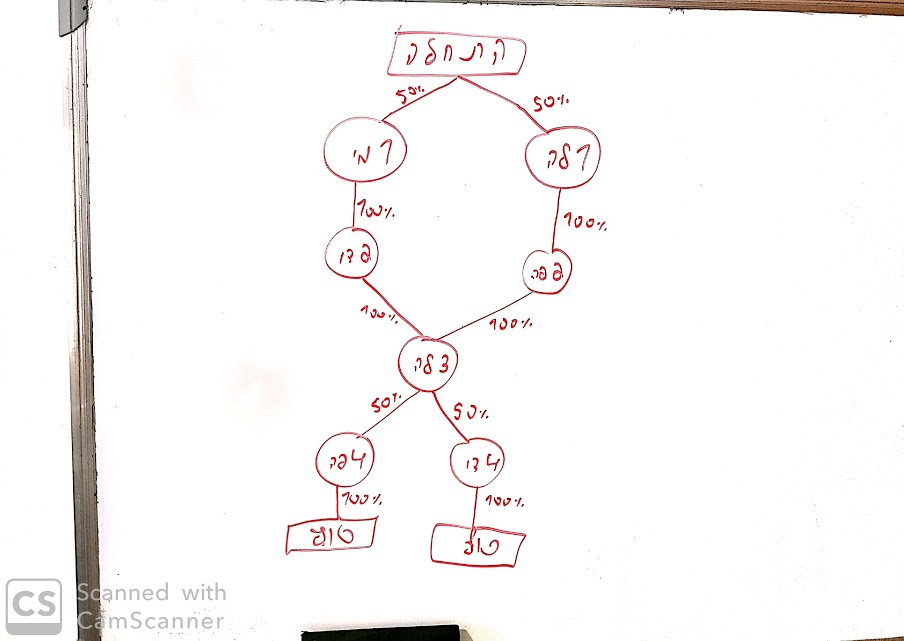 התחלה
50%
50%
1 מי
1 לה
100%
100%
2 רו
2 פה
100%
100%
3 לה
50%
50%
4 פה
4 רו
100%
100%
סוף
סוף
CS Scanned with
CamScanner